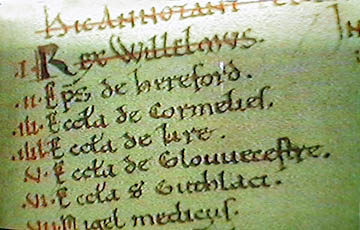 HIC ANNOTANT
.I. REX WILLELMVS.
.II. Ep̄s de hereford.
.III. Eccl̄a de Cormelies.
.IIII. Eccl̄a de Lire.
.V. Eccl̄a de Glouuecestre.
.VI. Eccl̄a S Guthlaci.
.VII. Nigel medicus.